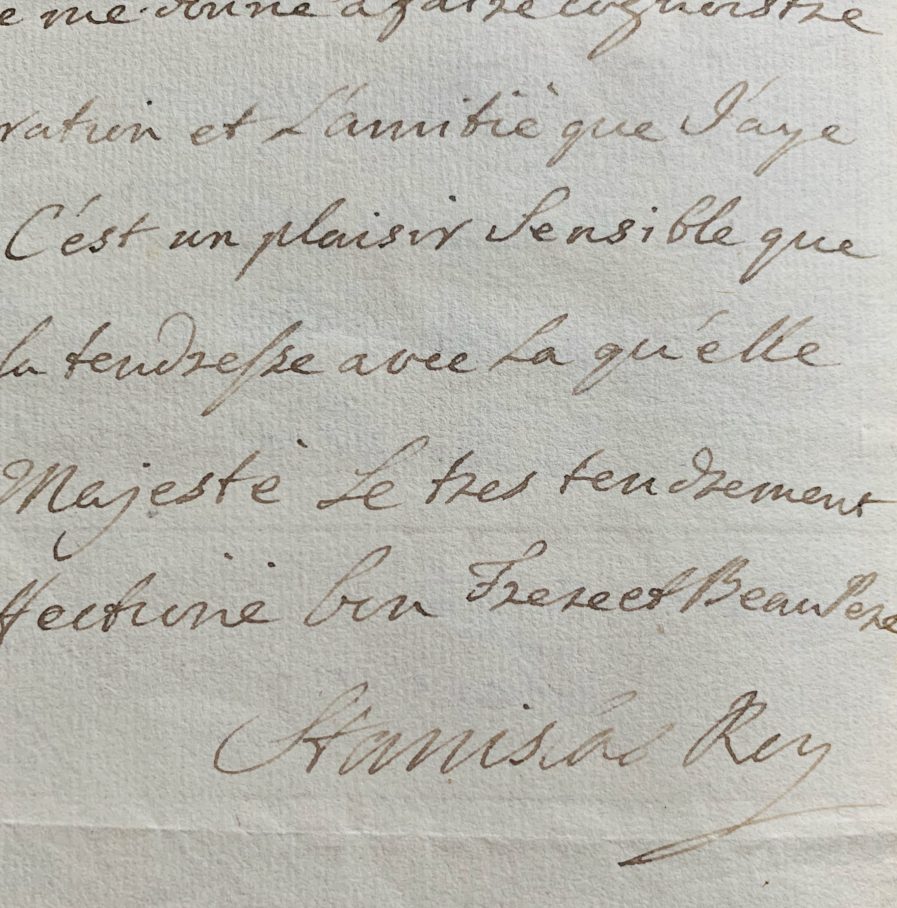 e me donne a faire cognoistre
ration et L'amitié que J'aye
C'ést un plaisir Sensible que
la tendresse avec La qu'elle
Majesté Le tres tendrement
ffectioné bon Frere et Beau Pere
Stanislas Roy